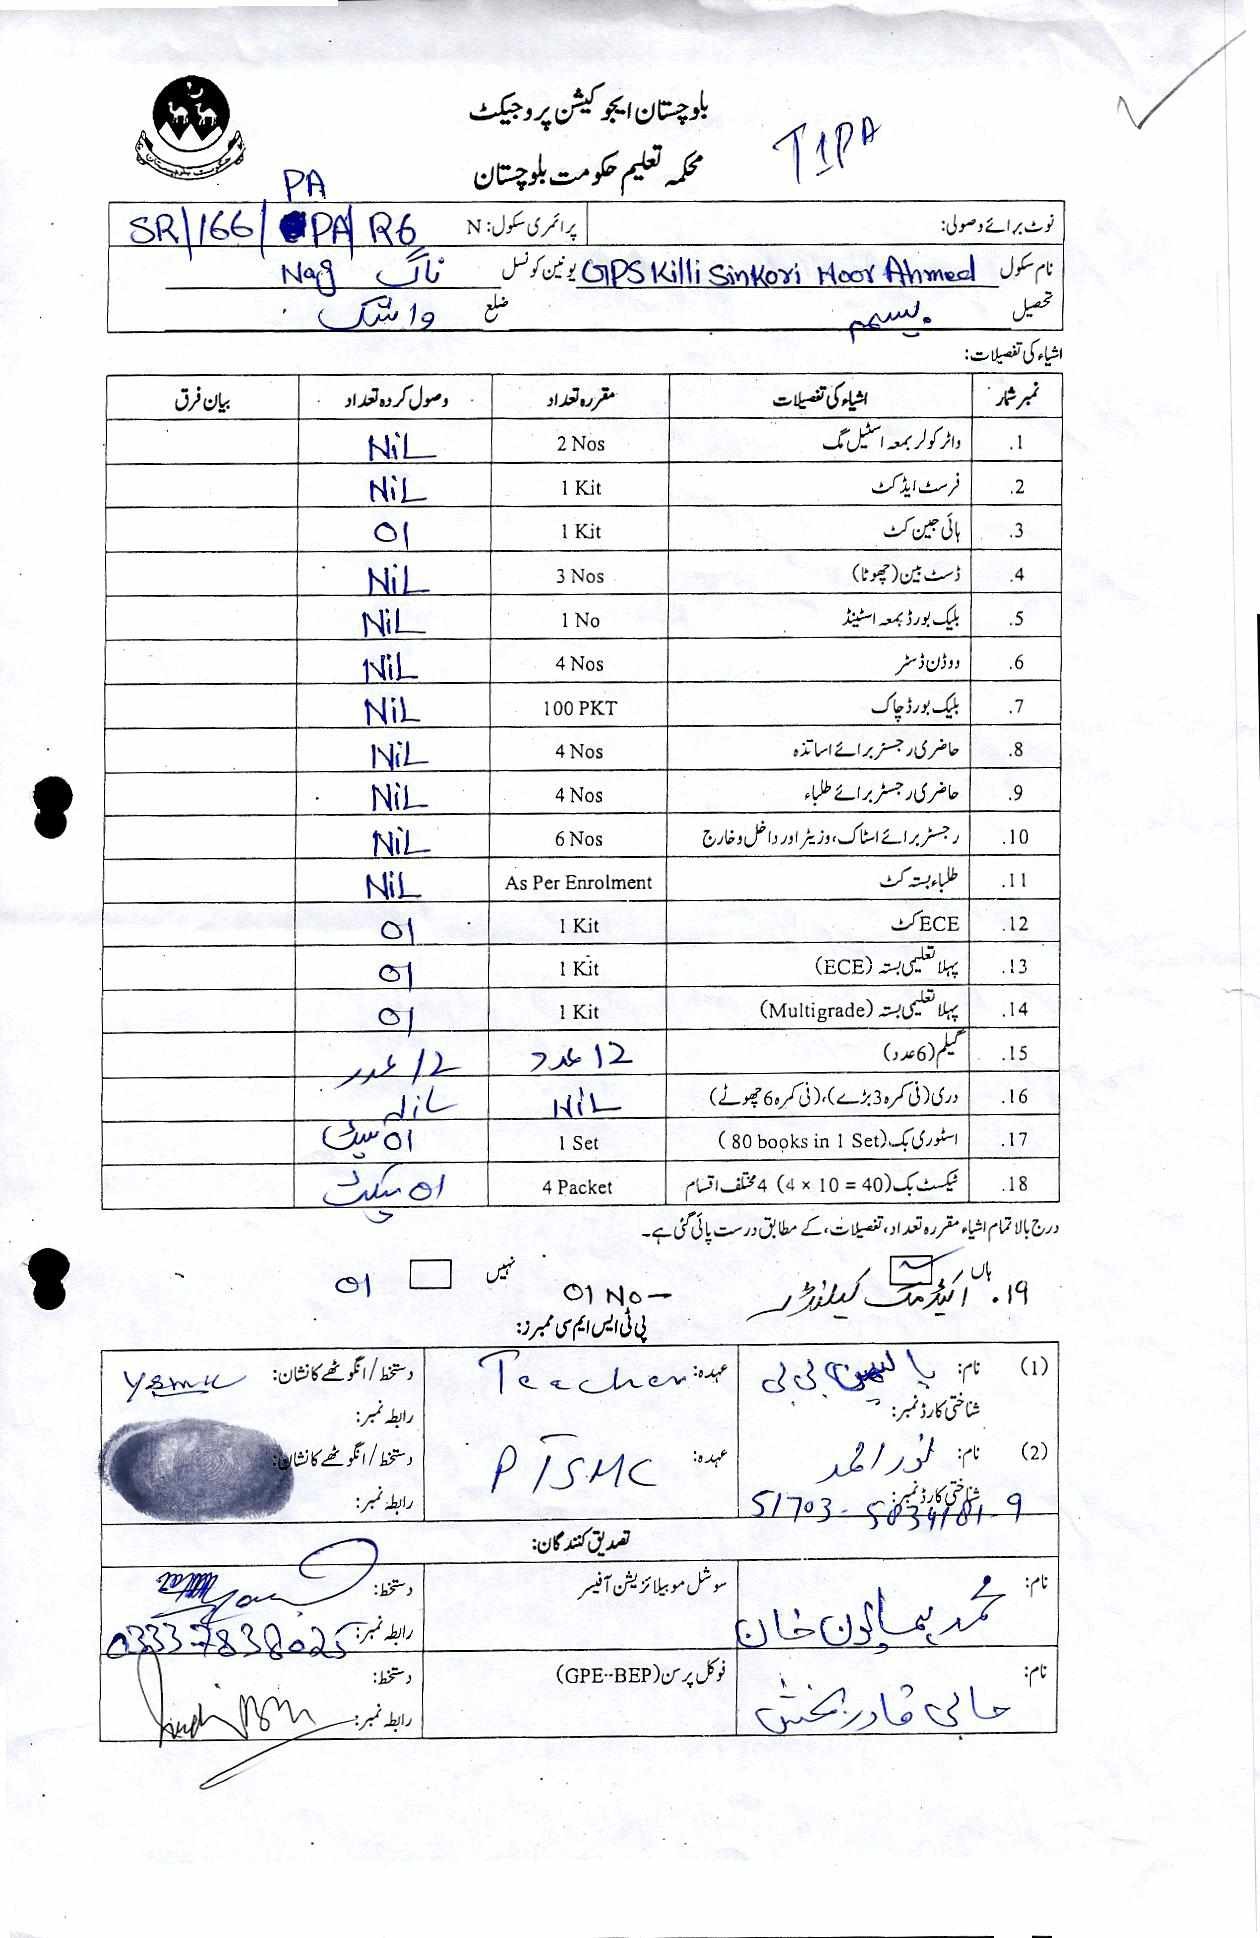 بلوچستان ایجوکیشن پروجیکٹ
محکمہ تعلیم حکومت بلوچستان
T1PA
PA
نوٹ برائے وصولی: پرائمری سکول: N SR/166/ PA/ R6
نام سکول GPS Killi Sinkori Noor Ahmed یونین کونسل ناگ Nag
تحصیل بسیمہ ضلع واشک
اشیاء کی تفصیلات:
نمبر شمار اشیاء کی تفصیلات مقررہ تعداد وصول کردہ تعداد بیان فرق
1. واٹر کولر بمعہ اسٹیل مگ 2 Nos NiL
2. فرسٹ ایڈ کٹ 1 Kit NiL
3. ہائی جین کٹ 1 Kit 01
4. ڈسٹ بین (چھوٹا) 3 Nos NiL
5. بلیک بورڈ بمعہ اسٹینڈ 1 No NiL
6. ووڈن ڈسٹر 4 Nos NiL
7. بلیک بورڈ چاک 100 PKT NiL
8. حاضری رجسٹر برائے اساتذہ 4 Nos NiL
9. حاضری رجسٹر برائے طلباء 4 Nos NiL
10. رجسٹر برائے اسٹاک، وزیٹر اور داخل و خارج 6 Nos NiL
11. طلباء بستہ کٹ As Per Enrolment NiL
12. ECE کٹ 1 Kit 01
13. پہلا تعلیمی بستہ (ECE) 1 Kit 01
14. پہلا تعلیمی بستہ (Multigrade) 1 Kit 01
15. گیلم (6 عدد) 12 عدد 12 عدد
16. دری (فی کمرہ 3 بڑے)، (فی کمرہ 6 چھوٹے) NiL NiL
17. اسٹوری بک (80 books in 1 Set) 1 Set 01 سیٹ
18. ٹیکسٹ بک (4 × 10 = 40) 4 مختلف اقسام 4 Packet 01 پیکٹ
درج بالا تمام اشیاء مقررہ تعداد، تفصیلات، کے مطابق درست پائی گئی ہے۔
ہاں نہیں
19. اکیڈمک کیلنڈر 01 No - 01
پی ٹی ایس ایم سی ممبرز:
(1) نام: یاسمین بی بی عہدہ: Teacher دستخط/انگوٹھے کا نشان:
شناختی کارڈ نمبر: رابطہ نمبر:
(2) نام: نور احمد عہدہ: PTSMC دستخط/انگوٹھے کا نشان:
شناختی کارڈ نمبر: 51703-5034181-9 رابطہ نمبر:
تصدیق کنندگان:
نام: محمد ہمایون خان سوشل موبیلائزیشن آفیسر دستخط:
رابطہ نمبر: 0333-7838025
نام: حاجی قادر بخش فوکل پرسن (GPE--BEP) دستخط:
رابطہ نمبر: